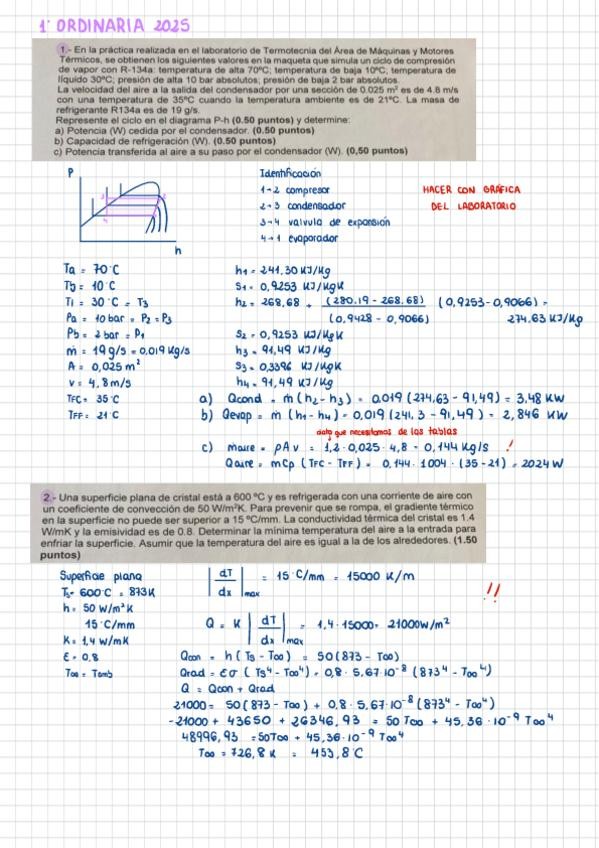 1º ORDINARIA 2025
1.- En la práctica realizada en el laboratorio de Termotecnia del Área de Máquinas y Motores
Térmicos, se obtienen los siguientes valores en la maqueta que simula un ciclo de compresión
de vapor con R-134a: temperatura de alta 70ºC; temperatura de baja 10ºC, temperatura de
líquido 30ºC; presión de alta 10 bar absolutos; presión de baja 2 bar absolutos.
La velocidad del aire a la salida del condensador por una sección de 0.025 m² es de 4.8 m/s
con una temperatura de 35ºC cuando la temperatura ambiente es de 21ºC. La masa de
refrigerante R134a es de 19 g/s.
Represente el ciclo en el diagrama P-h (0.50 puntos) y determine:
a) Potencia (W) cedida por el condensador. (0.50 puntos)
b) Capacidad de refrigeración (W). (0.50 puntos)
c) Potencia transferida al aire a su paso por el condensador (W). (0,50 puntos)
P
h
Identificación
1→2 compresor
2→3 condensador
3→4 valvula de expansión
4→1 evaporador
HACER CON GRÁFICA
DEL LABORATORIO
Ta = 70ºC
Tb = 10ºC
Tl = 30ºC = T3
Pa = 10 bar = P2 = P3
Pb = 2 bar = P1
ṁ = 19 g/s = 0,019 Kg/s
A = 0,025 m²
v = 4,8 m/s
TFC = 35ºC
TFF = 21ºC
h1 = 241,30 KJ/Kg
S1 = 0,9253 KJ/KgK
h2 = 268,68 + (280.19 - 268.68) (0,9253-0,9066) =
(0,9428 - 0,9066) 274.63 KJ/Kg
S2 = 0,9253 KJ/KgK
h3 = 91,49 KJ/Kg
S3 = 0,3396 KJ/KgK
h4 = 91,49 KJ/Kg
a) Qcond = ṁ (h2-h3) = 0,019 (274,63 - 91,49) = 3,48 KW
b) Qevap = ṁ (h1-h4) = 0,019 (241,3 - 91,49) = 2,846 KW
dato que necesitamos de las tablas
c) ṁaire = ρAv = 1,2 · 0,025 · 4,8 = 0,144 Kg/s !
Qaire = ṁCp (TFC - TFF) = 0,144 · 1004 · (35-21) = 2024 W
2.- Una superficie plana de cristal está a 600 ºC y es refrigerada con una corriente de aire con
un coeficiente de convección de 50 W/m²K. Para prevenir que se rompa, el gradiente térmico
en la superficie no puede ser superior a 15 ºC/mm. La conductividad térmica del cristal es 1.4
W/mK y la emisividad es de 0.8. Determinar la mínima temperatura del aire a la entrada para
enfriar la superficie. Asumir que la temperatura del aire es igual a la de los alrededores. (1.50
puntos)
Superficie plana
Ts = 600ºC = 873K
h = 50 W/m²K
15ºC/mm
K = 1,4 W/mK
ε = 0,8
T∞ = Tamb
|dT/dx|max = 15ºC/mm = 15000 K/m
!!
Q = K |dT/dx|max = 1,4 · 15000 = 21000W/m²
Qcon = h (Ts - T∞) = 50 (873 - T∞)
Qrad = εσ (Ts⁴ - T∞⁴) = 0,8 · 5,67·10⁻⁸ (873⁴ - T∞⁴)
Q = Qcon + Qrad
21000 = 50 (873 - T∞) + 0,8 · 5,67·10⁻⁸ (873⁴ - T∞⁴)
-21000 + 43650 + 26346,93 = 50 T∞ + 45,36 · 10⁻⁹ T∞⁴
48996,93 = 50T∞ + 45,36·10⁻⁹ T∞⁴
T∞ = 726,8 K = 453,8ºC